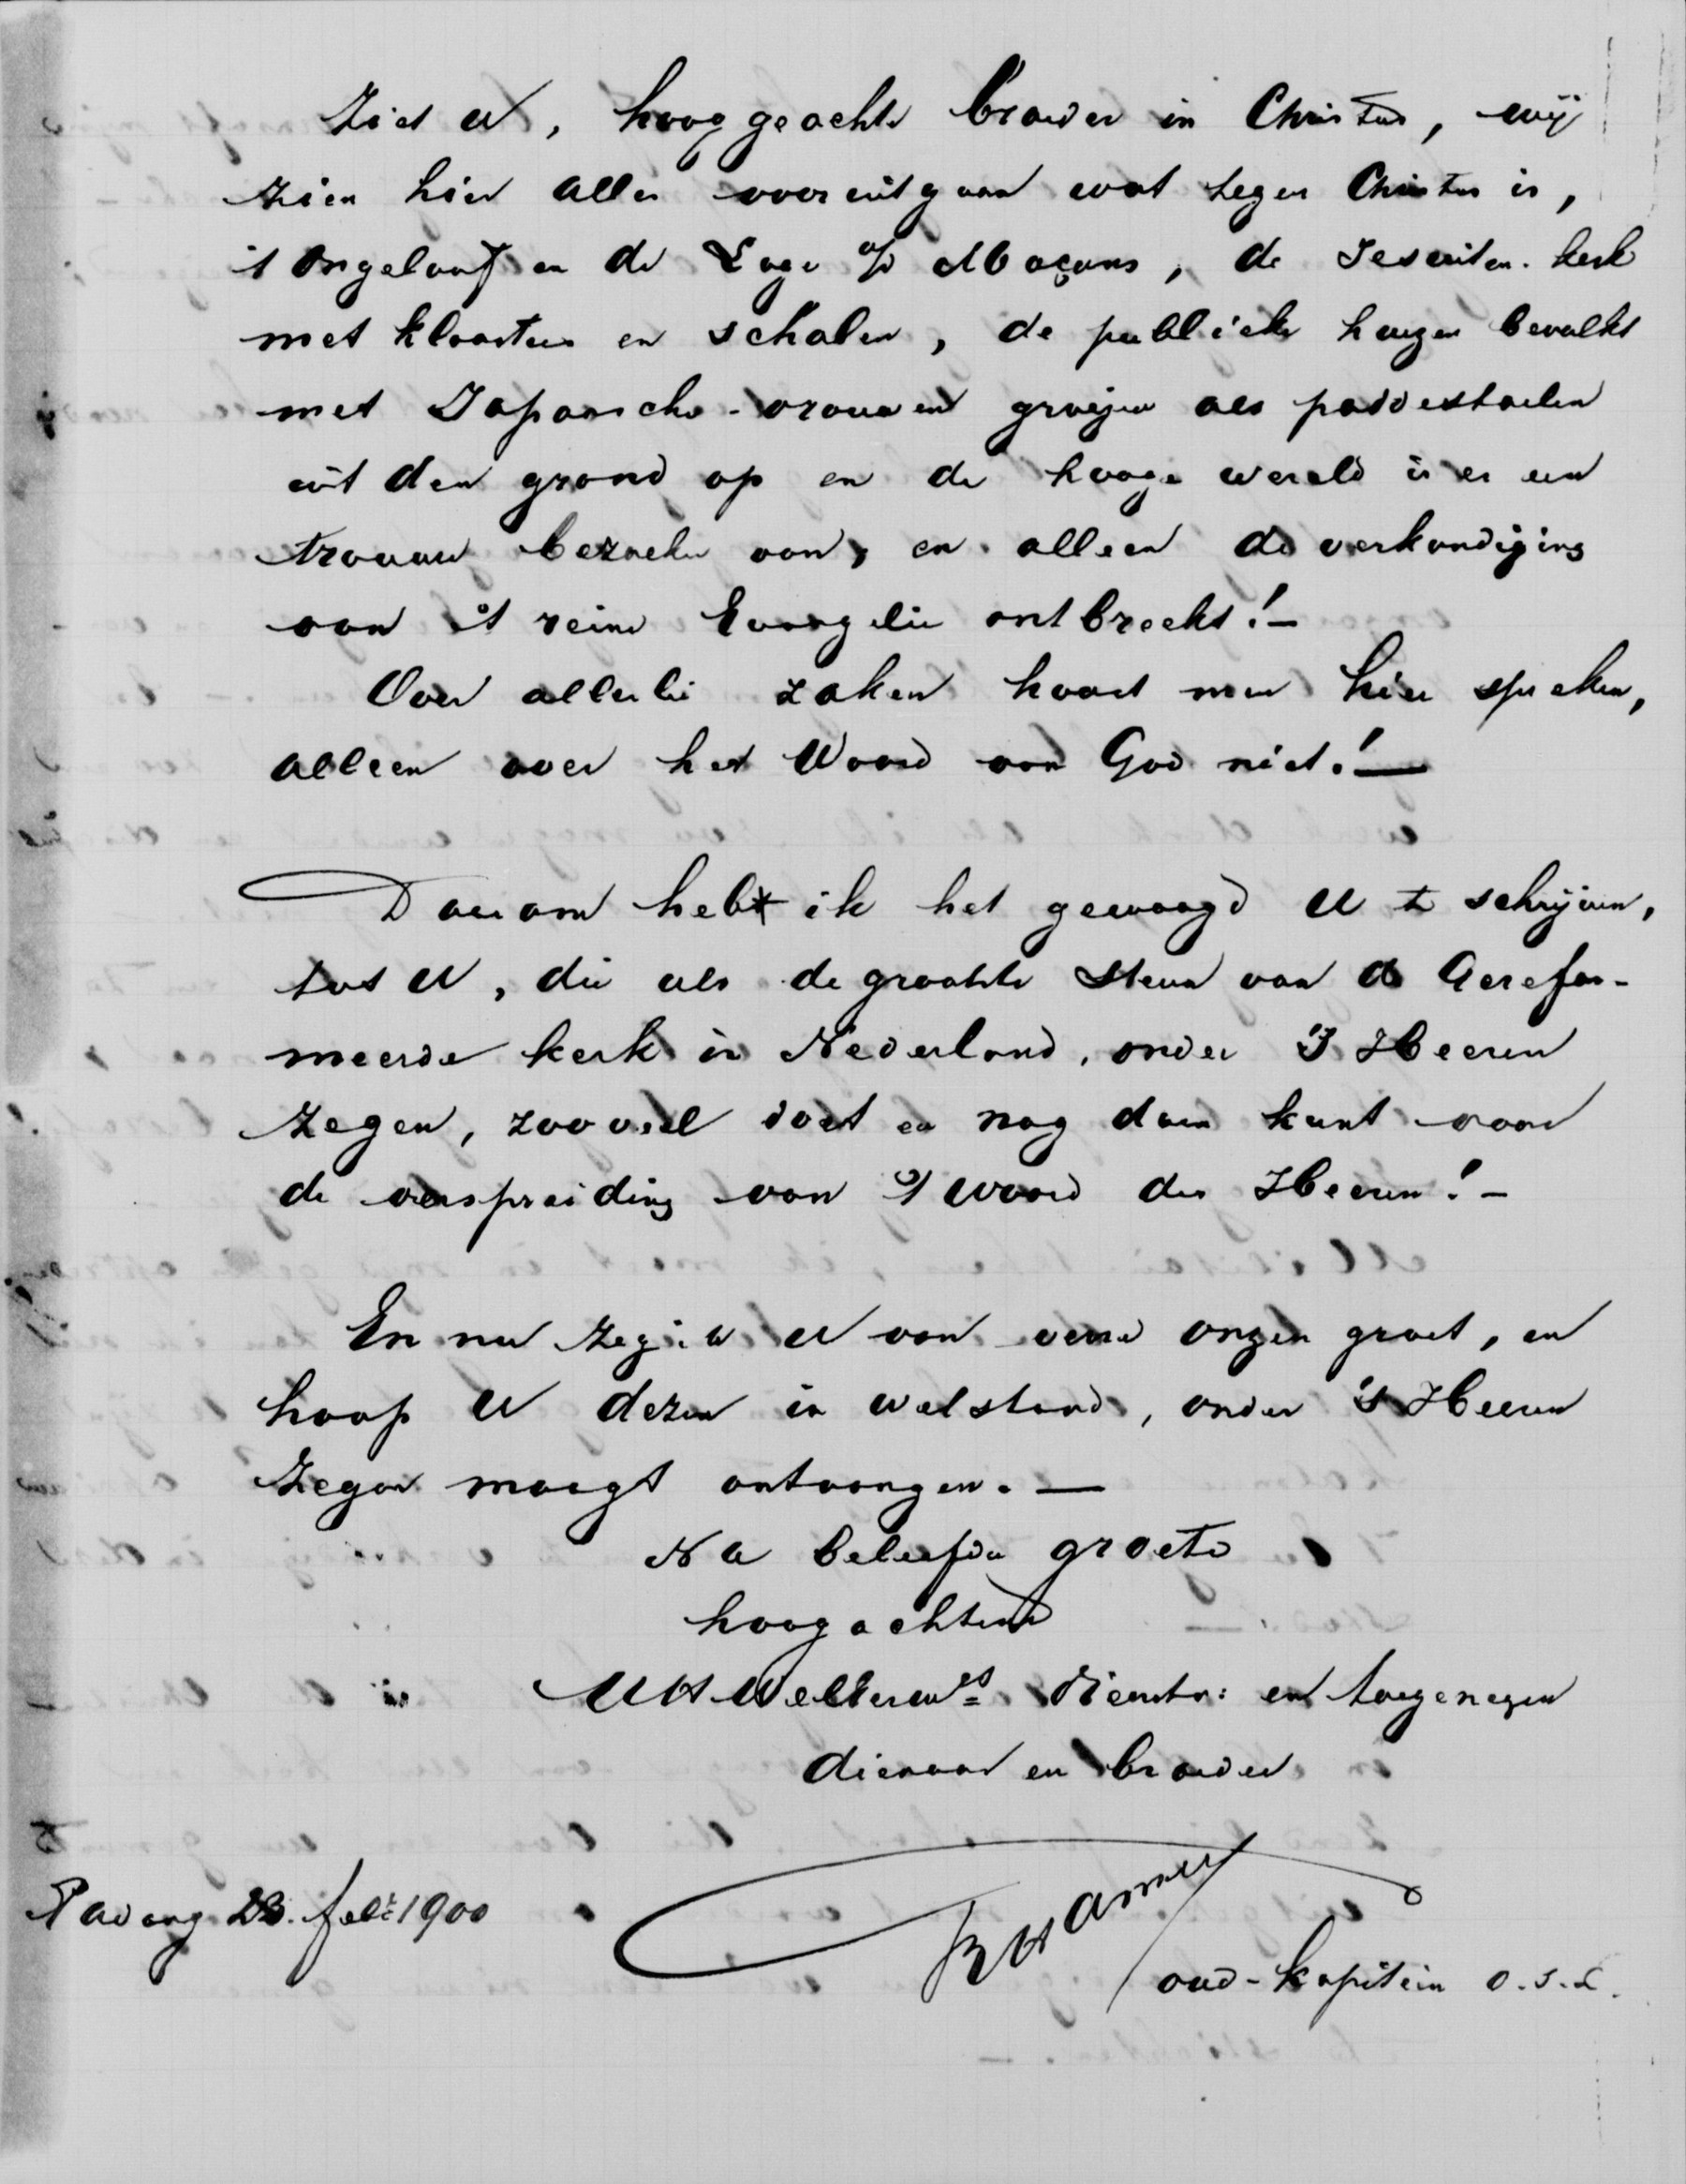 Ziet U, hooggeachte broeder in Christus, wij
zien hier alles vooruitgaan wat tegen Christus is,
't ongeloof en de Loge d/ Maçons, de Jesuiten-kerk
met kloosters en scholen, de publieke huizen bevolkt
met Japansche-vrouwen groeijen als paddestoelen
uit den grond op en de hooge wereld is er een
trouwe bezoeker van, en alleen de verkondiging
van 't reine Evangelie ontbreekt! -
Over allerlei zaken hoort men hier spreken,
alleen over het Woord van God niet! -
Daarom heb ik het gewaagd U te schrijven,
tot U, die als de grootste steun van de Gerefor-
meerde kerk in Nederland, onder 's Heeren
zegen, zooveel doet en nog doen kunt voor
de verspreiding van 't woord des Heeren! -
En nu zeg ik U van verre onzen groet, en
hoop U dezen in welstand, onder 's Heeren
Zegen moogt ontvangen. -
Na beleefde groete
hoogachtend
UHWelEerws dienstw: en toegenegen
dienaar en broeder
Padang 28. feb: 1900
oud-kapitein O.I.L.